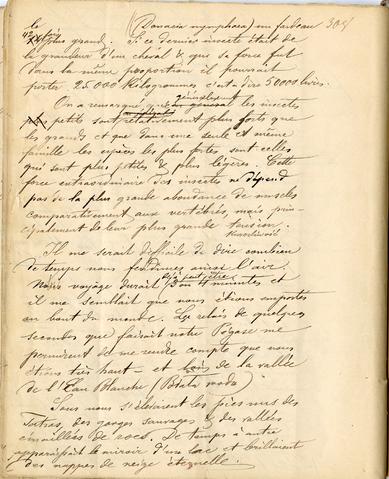 le (Donacia nymphaea) un fardeau 305
42 fois plus grand. Si ce dernier insecte était de
la grandeur d'un cheval & que sa force fut
dans la même proportion il pourrait
porter 25.000 Kilogrammes c'est à dire 50000 livres.
On a remarqué que généralement les insectes
petits sont relativement plus forts que
les grands et que dans une seule et même
famille les espèces les plus fortes sont celles
qui sont plus petites & plus légères. Cette
force extraordinaire des insectes ne dépend
pas de la plus grande abondance de muscles
comparativement aux vertébrés, mais prin-
cipalement de leur plus grande tension.
Il me serait difficile de dire combien
de temps nous fendîmes ainsi l'air.
Notre voyage durait déjà peut être 3 ou 4 minutes et
il me semblait que nous étions emportés
au bout du monde. Les relais de quelques
secondes que faisait notre Pégase me
permirent de me rendre compte que nous
étions très haut et loin de la vallée
de l'Eau Blanche (Biała woda)
Sous nous s'élevaient les pics nus des
Tatras, des gorges sauvages & des vallées
émaillées de rocs. De temps à autre
apparaissait le miroir d'un lac et brillaient
des nappes de neige éternelle.